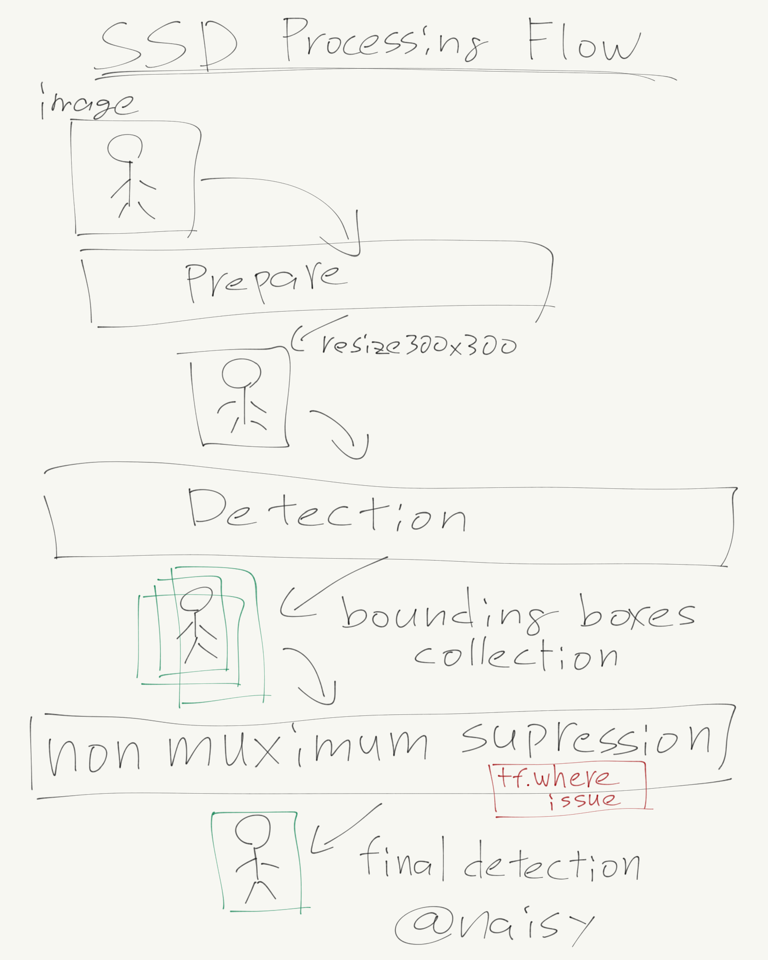 SSD Processing Flow
image
Prepare
resize300x300
Detection
bounding boxes
collection
non muximum supression
tf.where
issue
final detection
@naisy